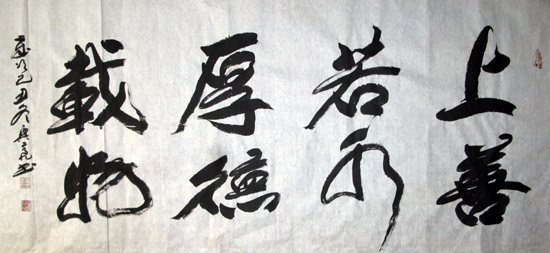 上善
若水
厚德
載物
歲次己丑冬